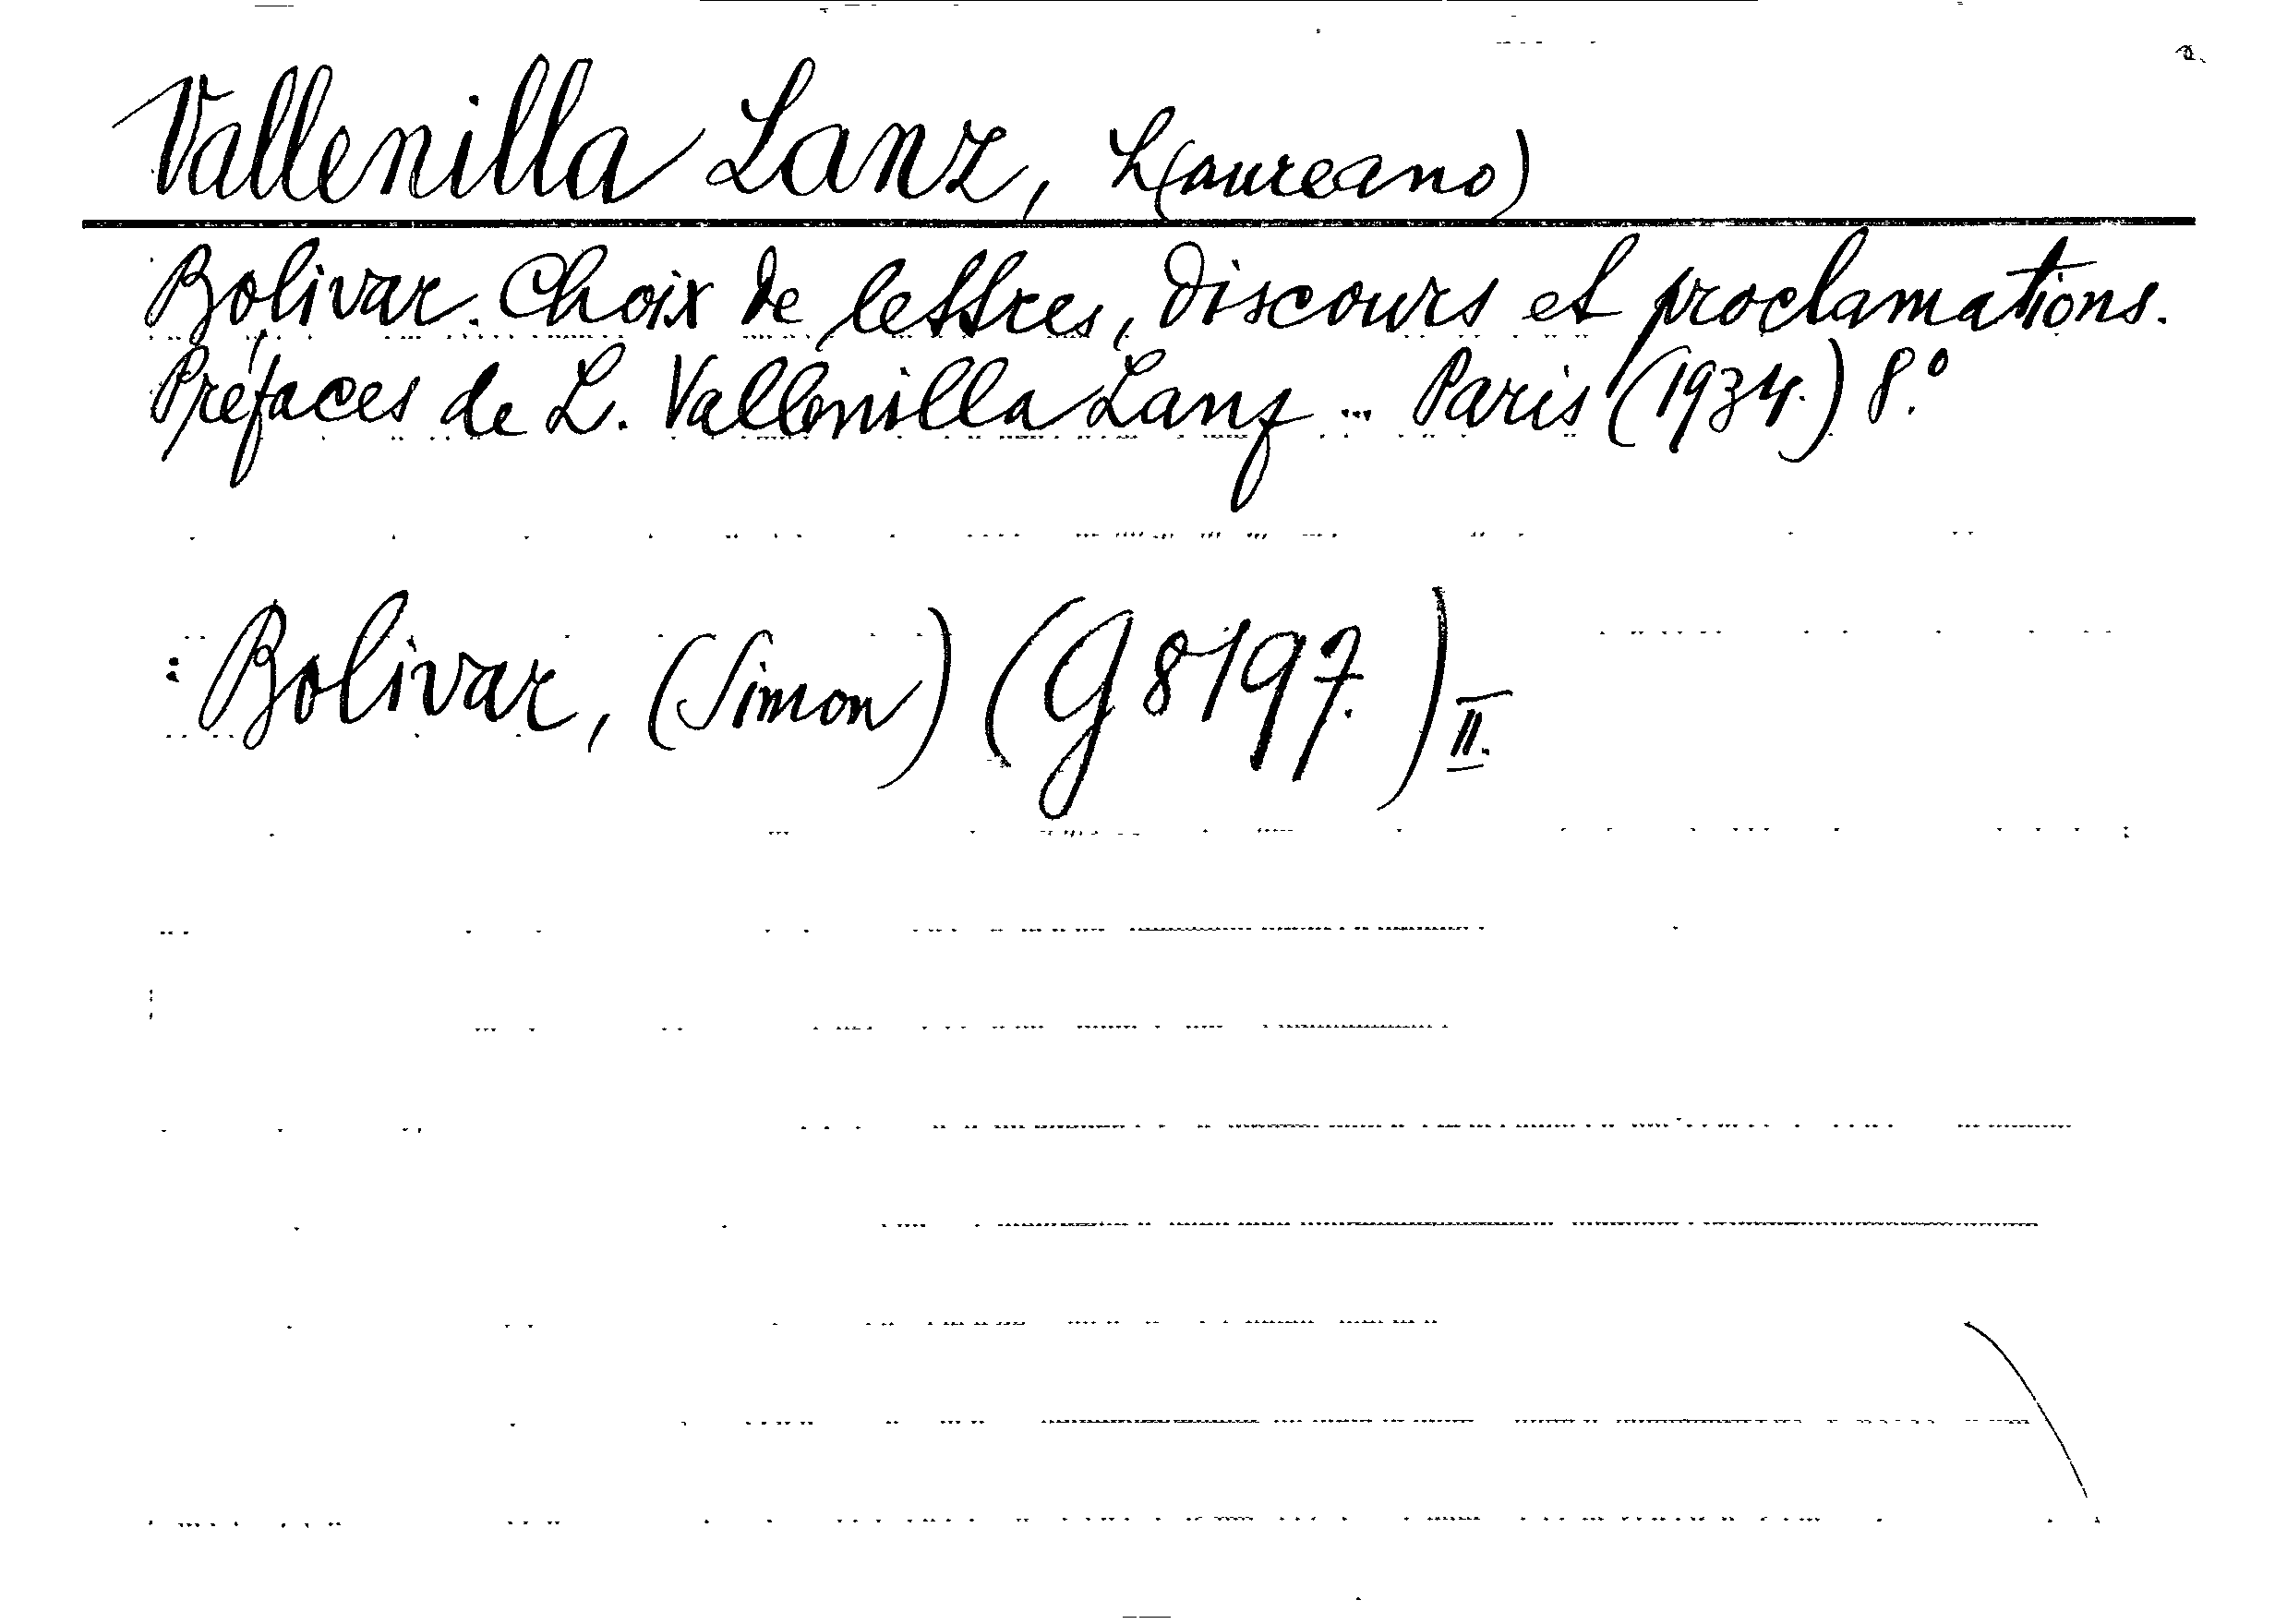 Vallenilla Lanz, L(aureano)
Bolivar. Choix de lettres, discours et proclamations.
Préfaces de L. Vallenilla Lanz ... Paris (1934.) 8.º
: Bolivar, (Simon) (G 8197.) II.